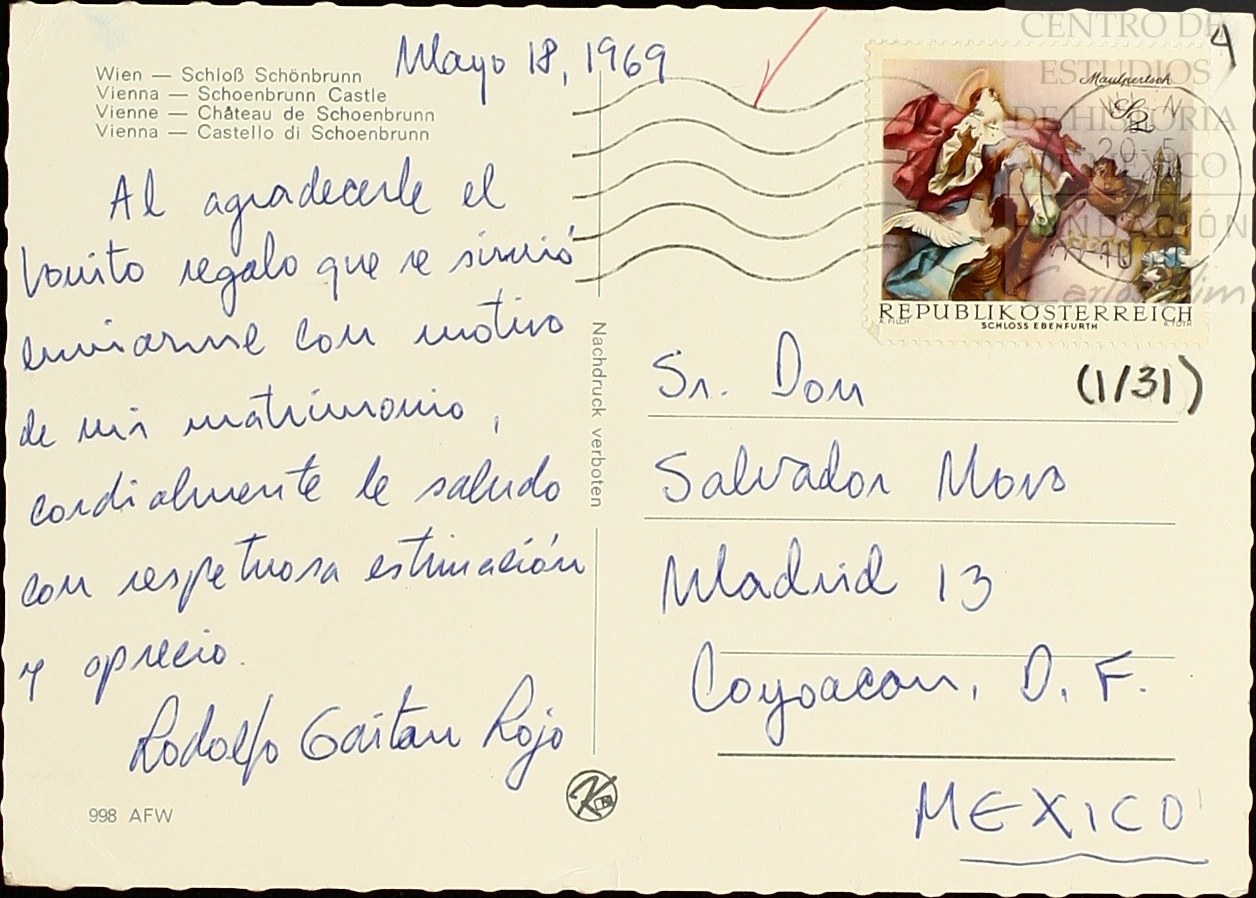 Wien — Schloß Schönbrunn
Vienna — Schoenbrunn Castle
Vienne — Château de Schoenbrunn
Vienna — Castello di Schoenbrunn
Mayo 18, 1969
Al agradecerle el
bonito regalo que se sirvió
enviarme con motivo
de mi matrimonio,
cordialmente le saludo
con respetuosa estimación
y aprecio.
Rodolfo Gaitan Rojo
998 AFW
Nachdruck verboten
4
CENTRO DE
ESTUDIOS
DE HISTORIA
DE MÉXICO
FUNDACIÓN
Carlos Slim
Maulpertsch
WIEN
20-5
REPUBLIK ÖSTERREICH
SCHLOSS EBENFURTH
A. PILCH
R. TOTH
(1/31)
Sr. Don
Salvador Novo
Madrid 13
Coyoacan, D. F.
MEXICO